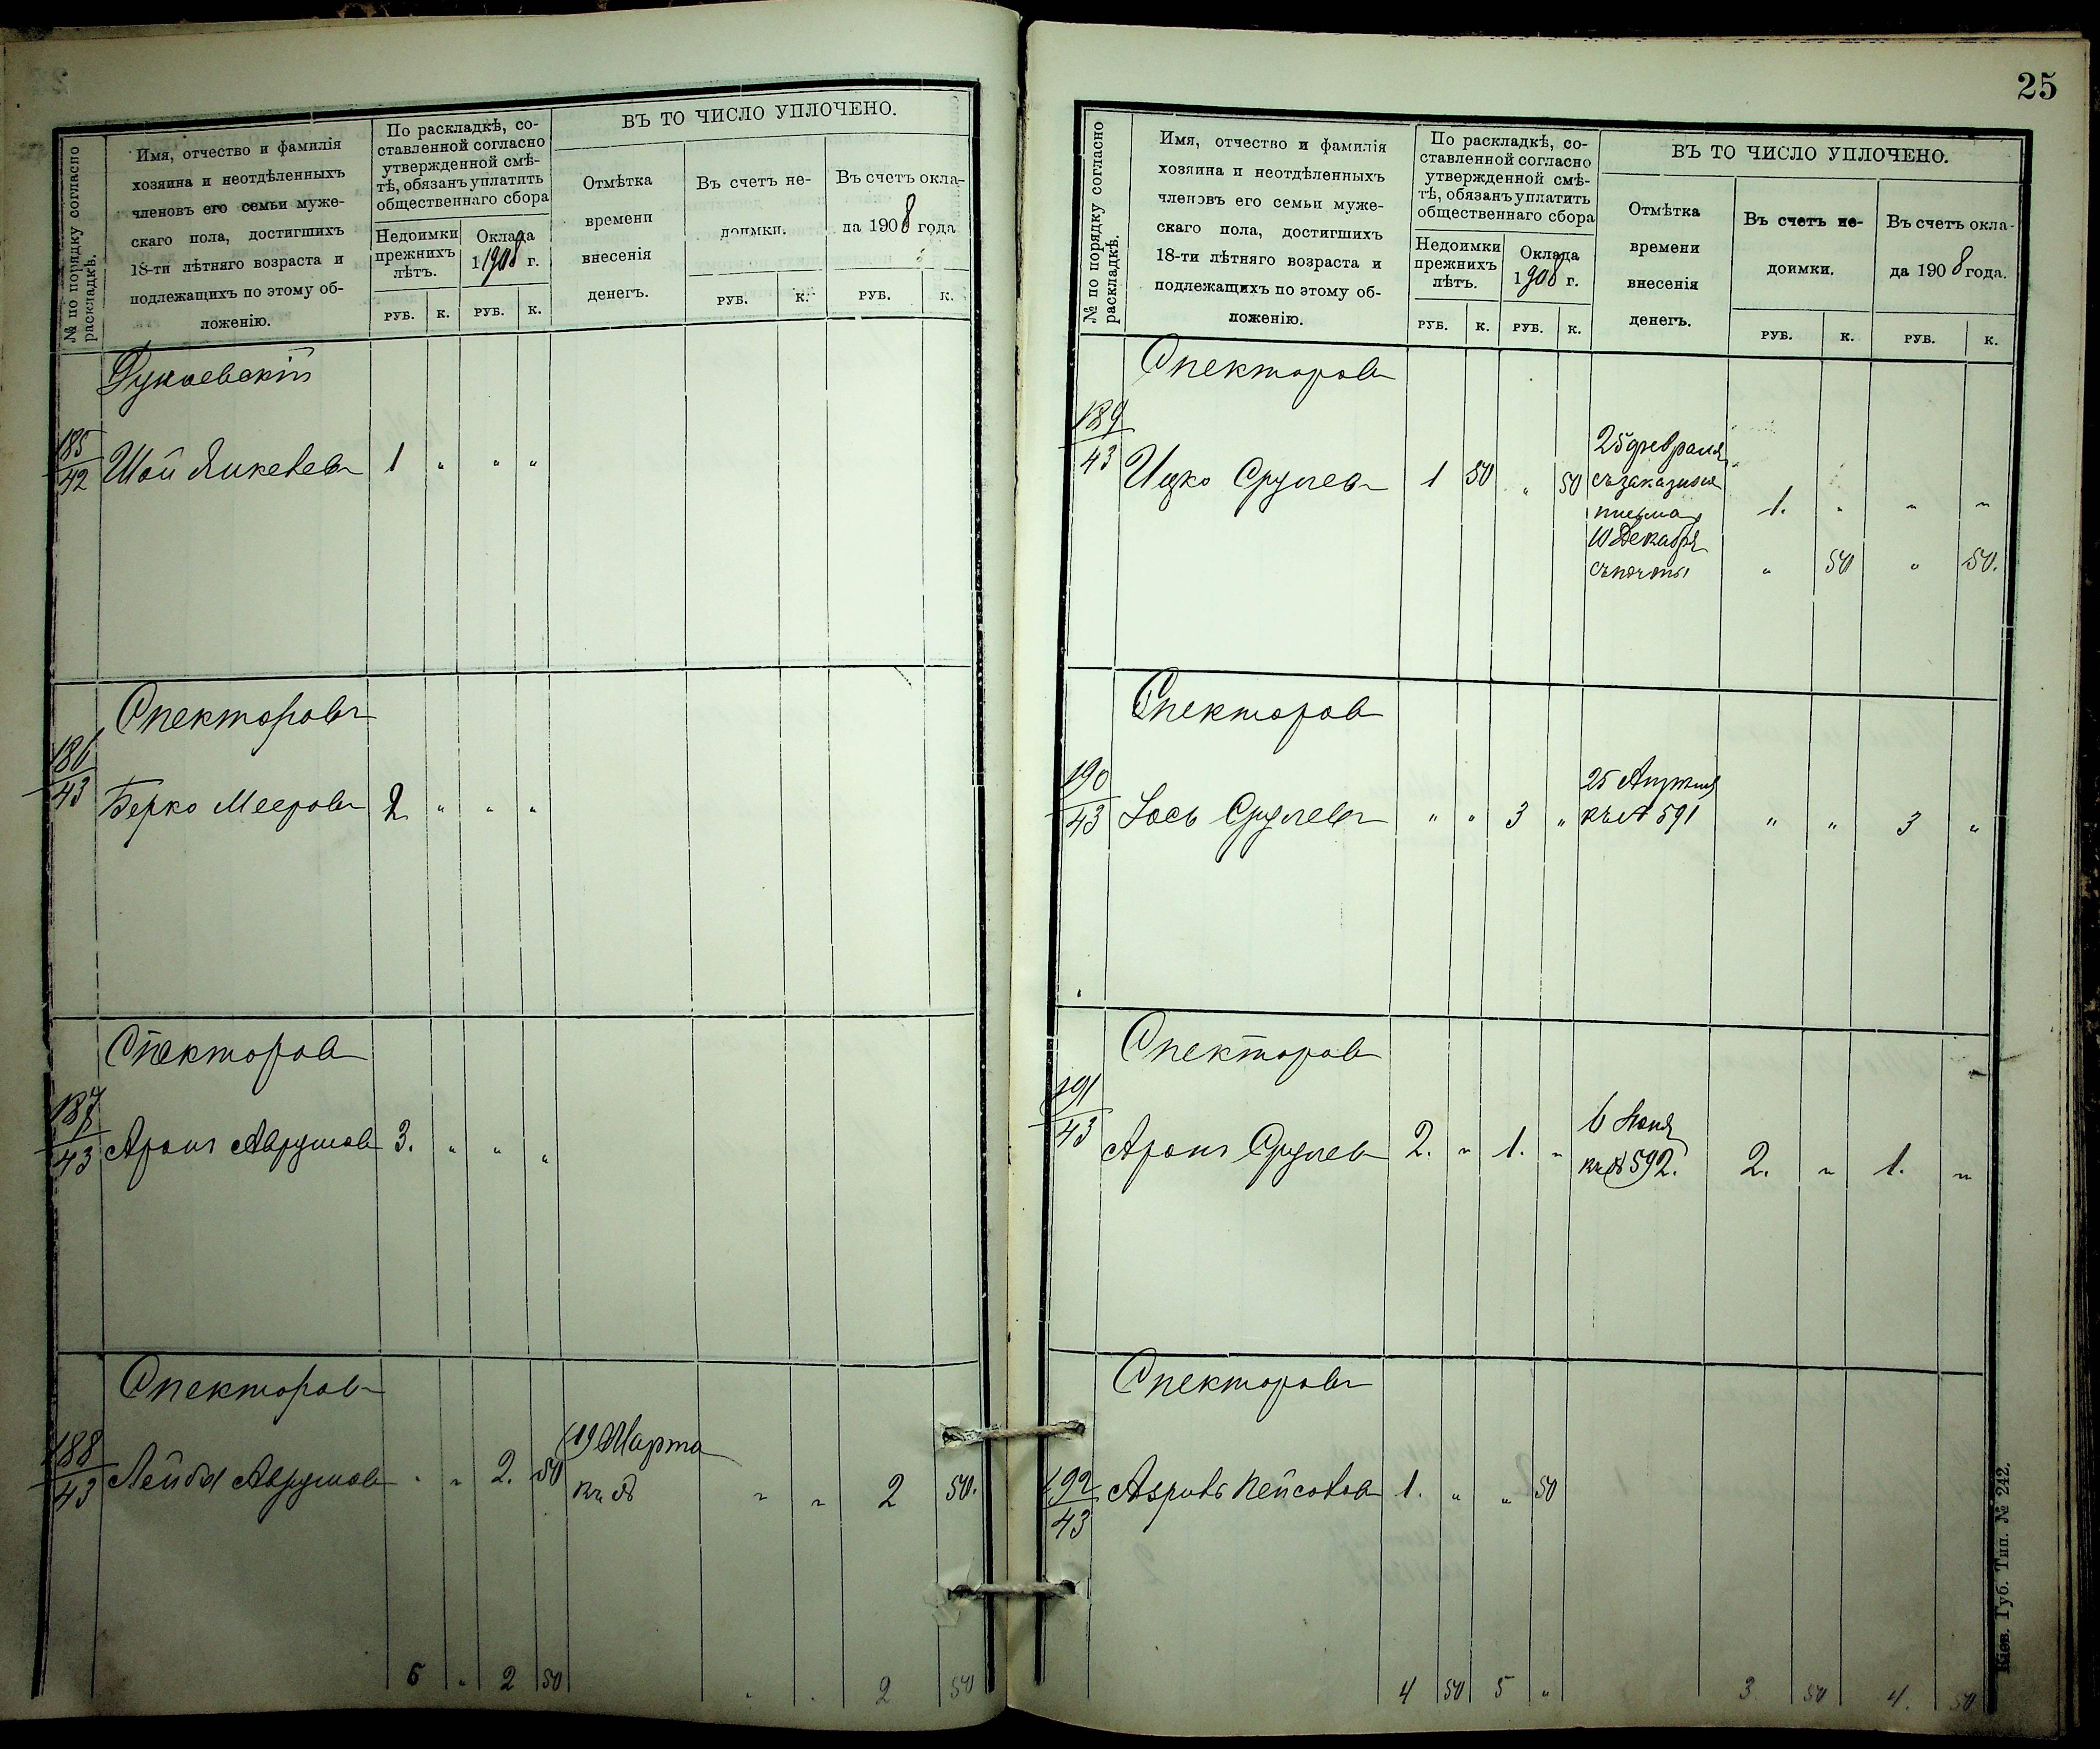 № по порядку согласно раскладкѣ.
Имя, отчество и фамилія
хозяина и неотдѣленныхъ
членовъ его семьи муже-
скаго пола, достигшихъ
18-ти лѣтняго возраста и
подлежащихъ по этому об-
ложенію.
По раскладкѣ, со-
ставленной согласно
утвержденной смѣ-
тѣ, обязанъ уплатить
общественнаго сбора
Недоимки
прежнихъ
лѣтъ.
Оклада
1 1908 г.
ВЪ ТО ЧИСЛО УПЛОЧЕНО.
Отмѣтка
времени
внесенія
денегъ.
Въ счетъ не-
доимки.
Въ счетъ окла-
да 1908 года
РУБ. К. РУБ. К. РУБ. К. РУБ. К.
185/42 Шай 1 " " "
Спекторовъ
186/43 Берко Мееровъ 2 " " "
Спекторовъ
187/43 Аронъ Аврумовъ 3. " " "
Спекторовъ
188/43 Лейба Аврумовъ " " 2. 50 19 Марта
къ № " " 2 50.
6 " 2 50 " " 2 50
25
№ по порядку согласно раскладкѣ.
Имя, отчество и фамилія
хозяина и неотдѣленныхъ
членовъ его семьи муже-
скаго пола, достигшихъ
18-ти лѣтняго возраста и
подлежащихъ по этому об-
ложенію.
По раскладкѣ, со-
ставленной согласно
утвержденной смѣ-
тѣ, обязанъ уплатить
общественнаго сбора
Недоимки
прежнихъ
лѣтъ.
Оклада
1908 г.
ВЪ ТО ЧИСЛО УПЛОЧЕНО.
Отмѣтка
времени
внесенія
денегъ.
Въ счетъ не-
доимки.
Въ счетъ окла-
да 1908 года.
РУБ. К. РУБ. К. РУБ. К. РУБ. К.
Спекторовъ
189/43 Ицко Срулевъ 1 50 " 50 25 февраля
письма 1. " " "
10 Декабря
съ почты " 50 " 50.
Спекторовъ
190/43 Іось Срулевъ " " 3 "
къ № 591 " " 3 "
Спекторовъ
191/43 Аронъ Срулевъ 2. " 1. " 6 Іюня
къ № 592. 2. " 1. "
Спекторовъ
192/43 Азріль Пейсаховъ 1. " " 50
4 50 5 " 3 50 4. 50
Кіев. Губ. Тип. № 242.